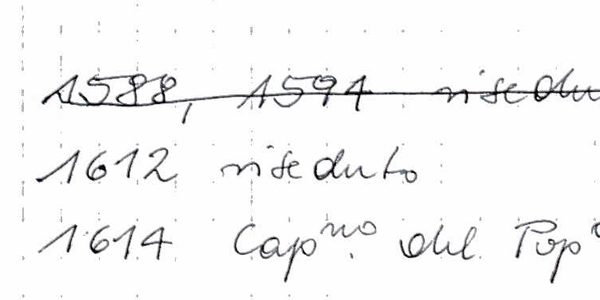 1588, 1594 risedu
1612 riseduto
1614 Cap.no del Popo